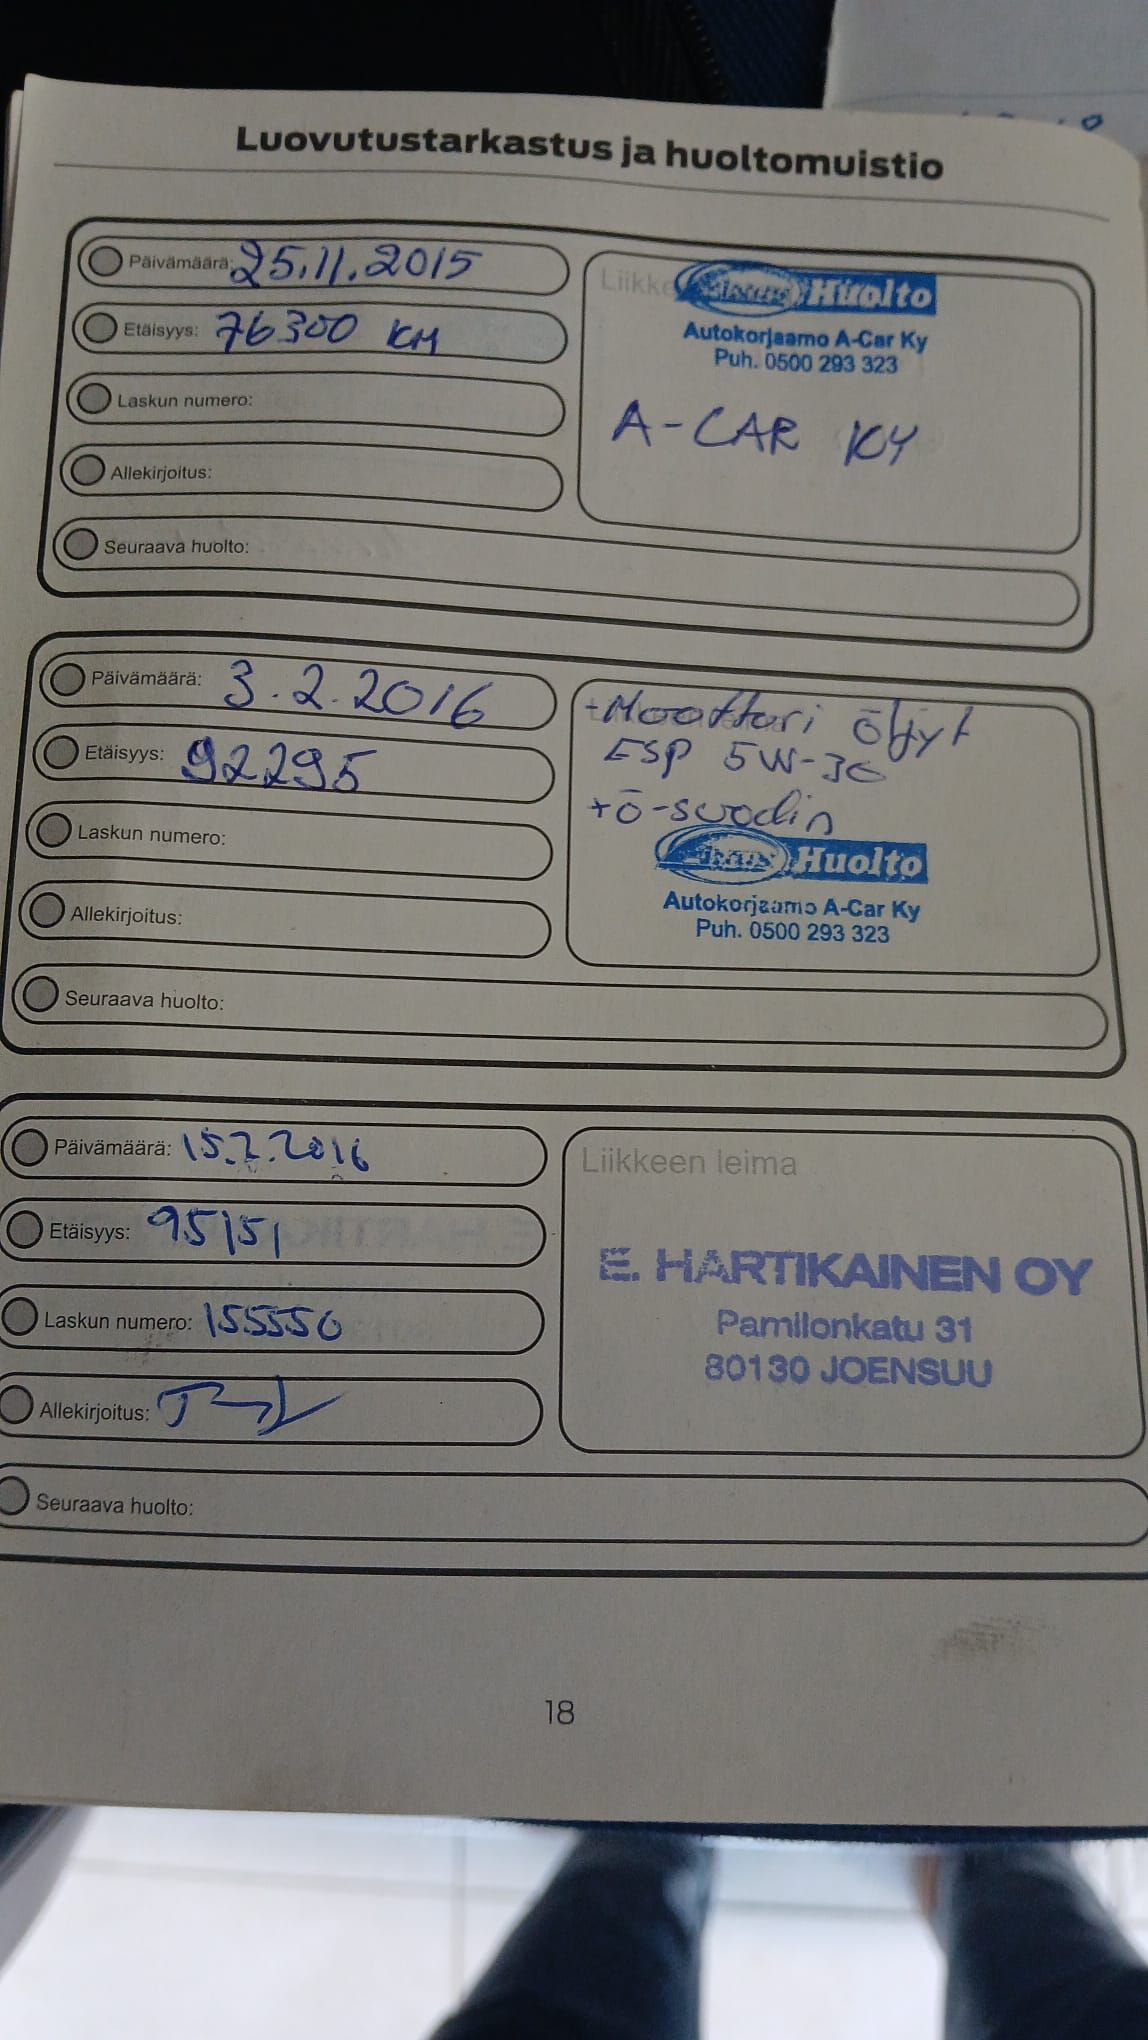 Luovutustarkastus ja huoltomuistio
Päivämäärä: 25.11.2015
Etäisyys: 76300 KM
Laskun numero:
Allekirjoitus:
Seuraava huolto:
Liikke
Huolto
Autokorjaamo A-Car Ky
Puh. 0500 293 323
A-CAR KY
Päivämäärä: 3.2.2016
Etäisyys: 92295
Laskun numero:
Allekirjoitus:
Seuraava huolto:
+Moottori öljyt
ESP 5W-30
+ö-suodin
Huolto
Autokorjaamo A-Car Ky
Puh. 0500 293 323
Päivämäärä: 15.2.2016
Etäisyys: 95151
Laskun numero: 155550
Allekirjoitus:
Seuraava huolto:
Liikkeen leima
E. HARTIKAINEN OY
Pamilonkatu 31
80130 JOENSUU
18